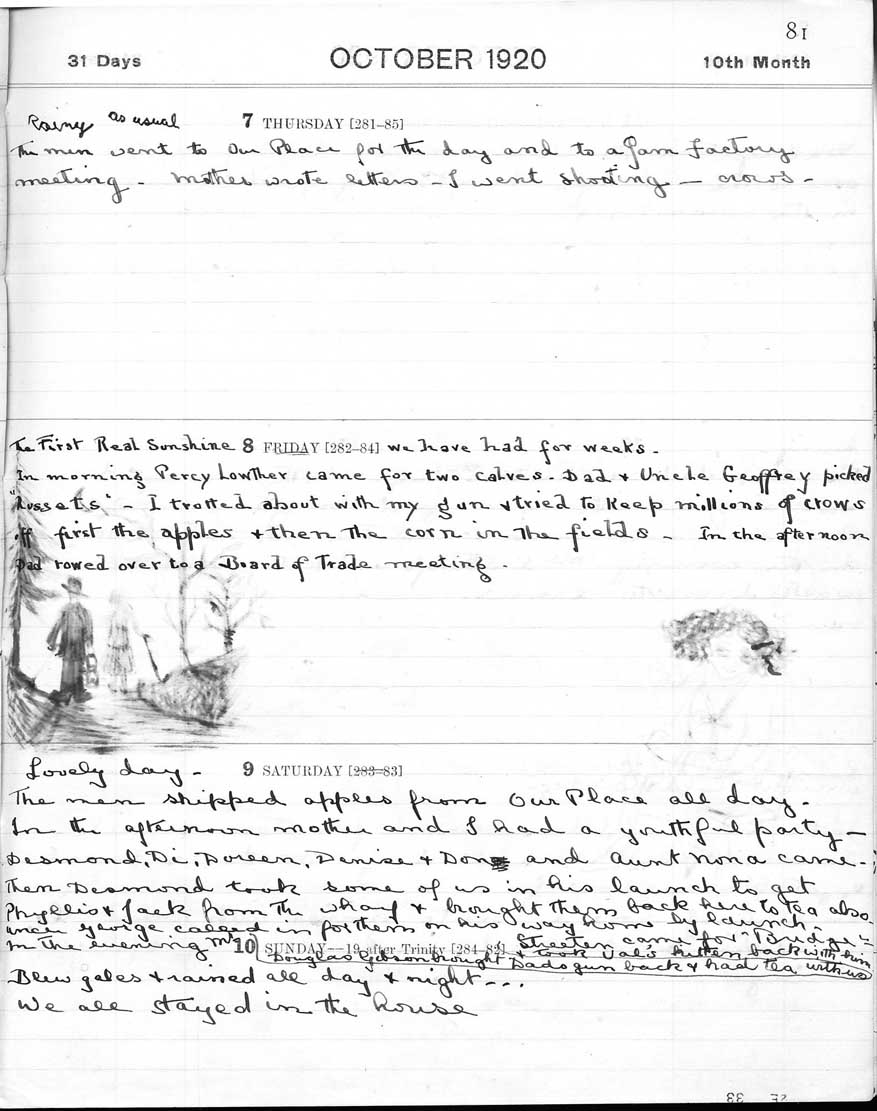 81
31 Days OCTOBER 1920 10th Month
Rainy as usual 7 THURSDAY [281-85]
The men went to Our Place for the day and to a Jam Factory
meeting - Mother wrote letters - I went shooting - crows -
The First Real Sunshine 8 FRIDAY [282-84] we have had for weeks.
In morning Percy Lowther came for two calves. Dad & Uncle Geoffrey picked
"Russets" - I trotted about with my gun & tried to keep millions of crows
off first the apples & then the corn in the fields - In the afternoon
Dad rowed over to a Board of Trade meeting.
Lovely day - 9 SATURDAY [283-83]
The men shipped apples from Our Place all day.
In the afternoon mother and I had a youthful party -
Desmond, Di, Doreen, Denise & Don and Aunt Nona came -
Then Desmond took some of us in his launch to get
Phyllis & Jack from the wharf & brought them back here to tea also
Uncle George called in for them on his way home by launch.
In the evening Mr Streeten came for "Bridge" -
& took Val's kitten back with him
10 SUNDAY-19 after Trinity [284-82]
Douglas Gibson brought Dads gun back & had tea with us
Blew gales & rained all day & night - ...
We all stayed in the house